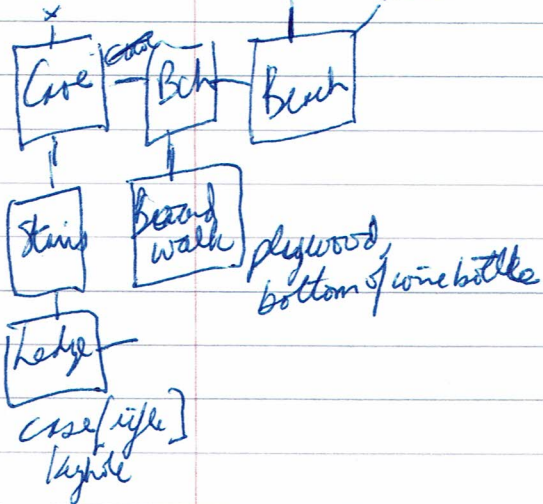 x
Cave Bch Beach
Stairs Board
walk plywood,
bottom of wine bottle
Ledge
case [rifle]
keyhole